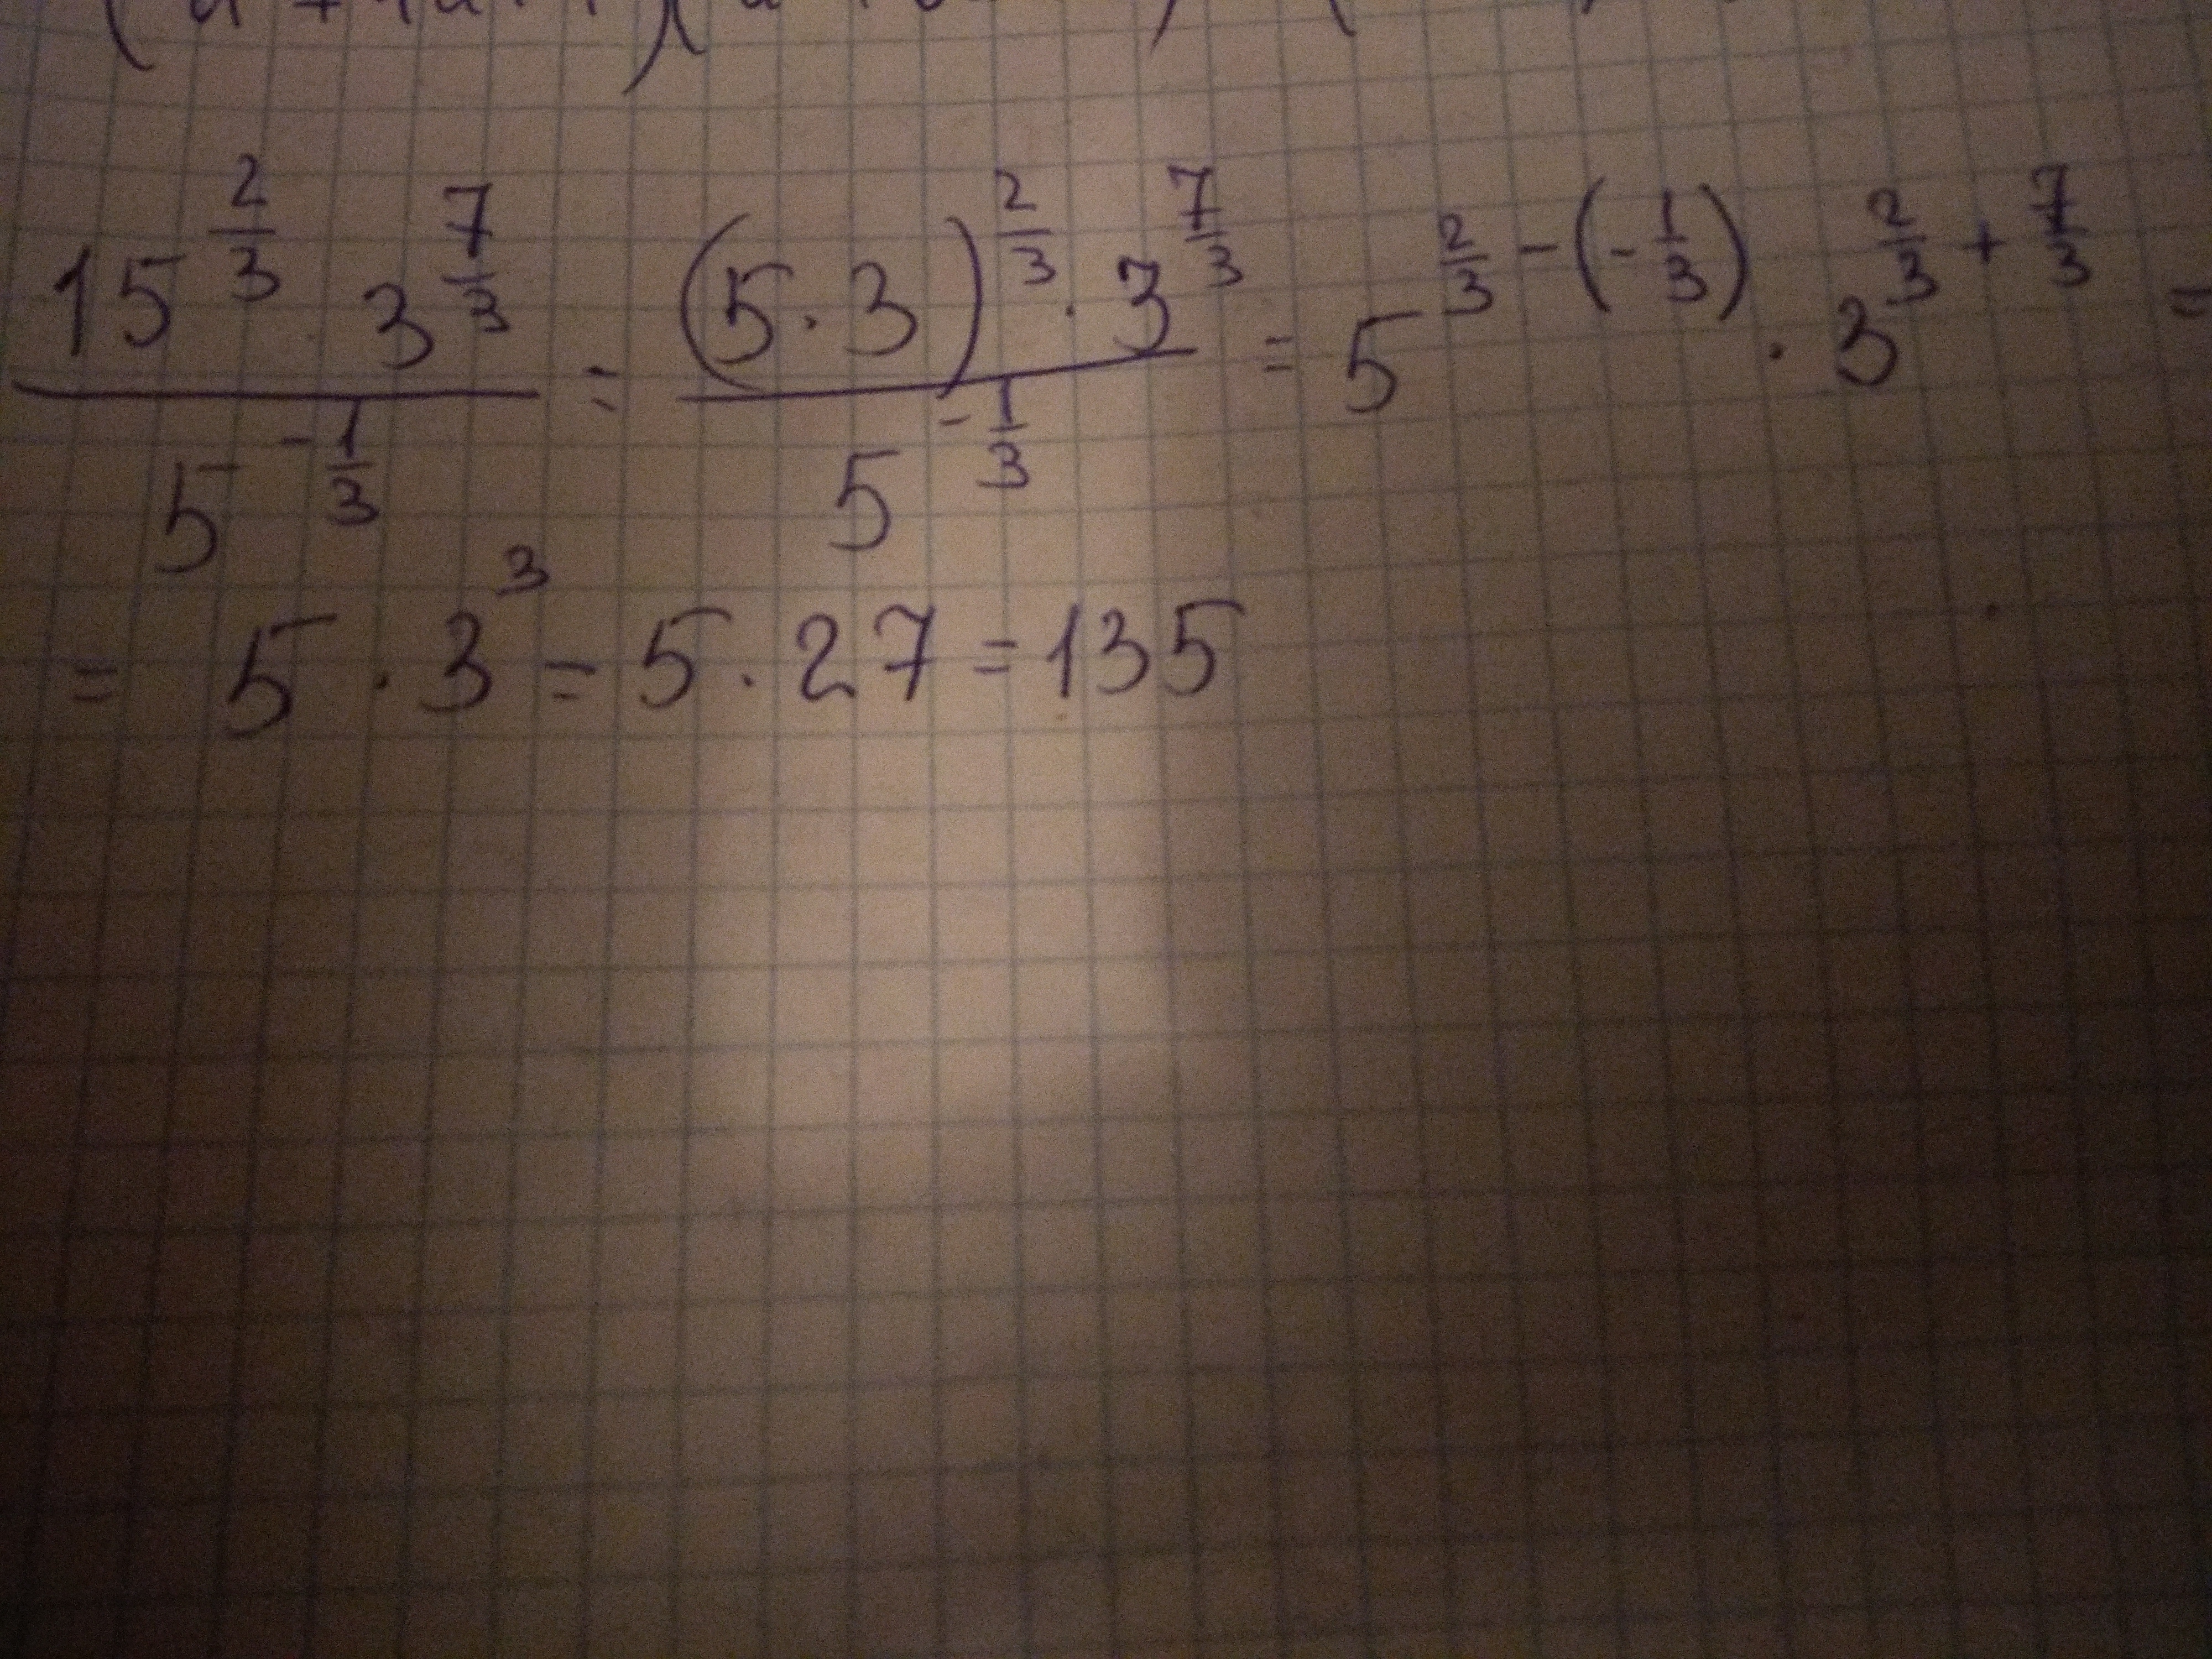 15^{\frac{2}{3}} · 3^{\frac{7}{3}} / 5^{-\frac{1}{3}} = (5 · 3)^{\frac{2}{3}} · 3^{\frac{7}{3}} / 5^{-\frac{1}{3}} = 5^{\frac{2}{3} - (-\frac{1}{3})} · 3^{\frac{2}{3} + \frac{7}{3}} =
= 5 · 3^3 = 5 · 27 = 135